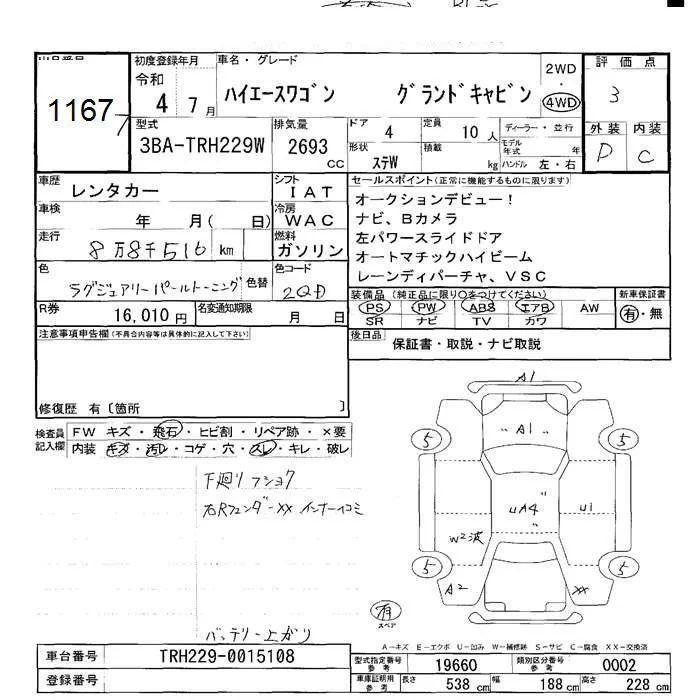 初度登録年月
令和
4 7月
1167
車名・グレード
ハイエースワゴン グランドキャビン
2WD
・
4WD
評価点
3
外装 内装
D C
型式
3BA-TRH229W
排気量
2693 CC
ドア 4
定員 10 人
ディーラー・並行
形状 ステW
積載 kg
モデル年式 年
ハンドル 左・右
車歴 レンタカー
シフト IAT
セールスポイント(正常に機能するものに限ります)
車検 年 月( 日)
冷房 WAC
オークションデビュー!
ナビ、Bカメラ
走行 8万8千516 km
燃料 ガソリン
左パワースライドドア
オートマチックハイビーム
レーンディパーチャ、VSC
色 ラグジュアリーパールトーニング 色替
色コード 2QD
装備品(純正品に限り○をつけてください)
新車保証書
PS PW ABS エアB AW
有・無
SR ナビ TV カワ
R券 16,010 円
名変通知期限 月 日
注意事項申告欄(不具合内容等は具体的に記入して下さい)
後日品 保証書・取説・ナビ取説
修復歴 有〔箇所 〕
検査員記入欄
FW キズ・飛石・ヒビ割・リペア跡・×要
内装 キズ・汚レ・コゲ・穴・スレ・キレ・破レ
下廻りフショク
右Rフェンダー××インナーイコミ
バッテリー上がり
A1
A1
5 5
uA4
u1
W2波
5 5
A2 ××
有
スペア
A-キズ E-エクボ U-凹み W-補修跡 S-サビ C-腐食 XX-交換済
車台番号 TRH229-0015108
登録番号
型式指定番号 参考 19660
類別区分番号 参考 0002
車庫証明用 参考 長さ 538 cm 幅 188 cm 高さ 228 cm